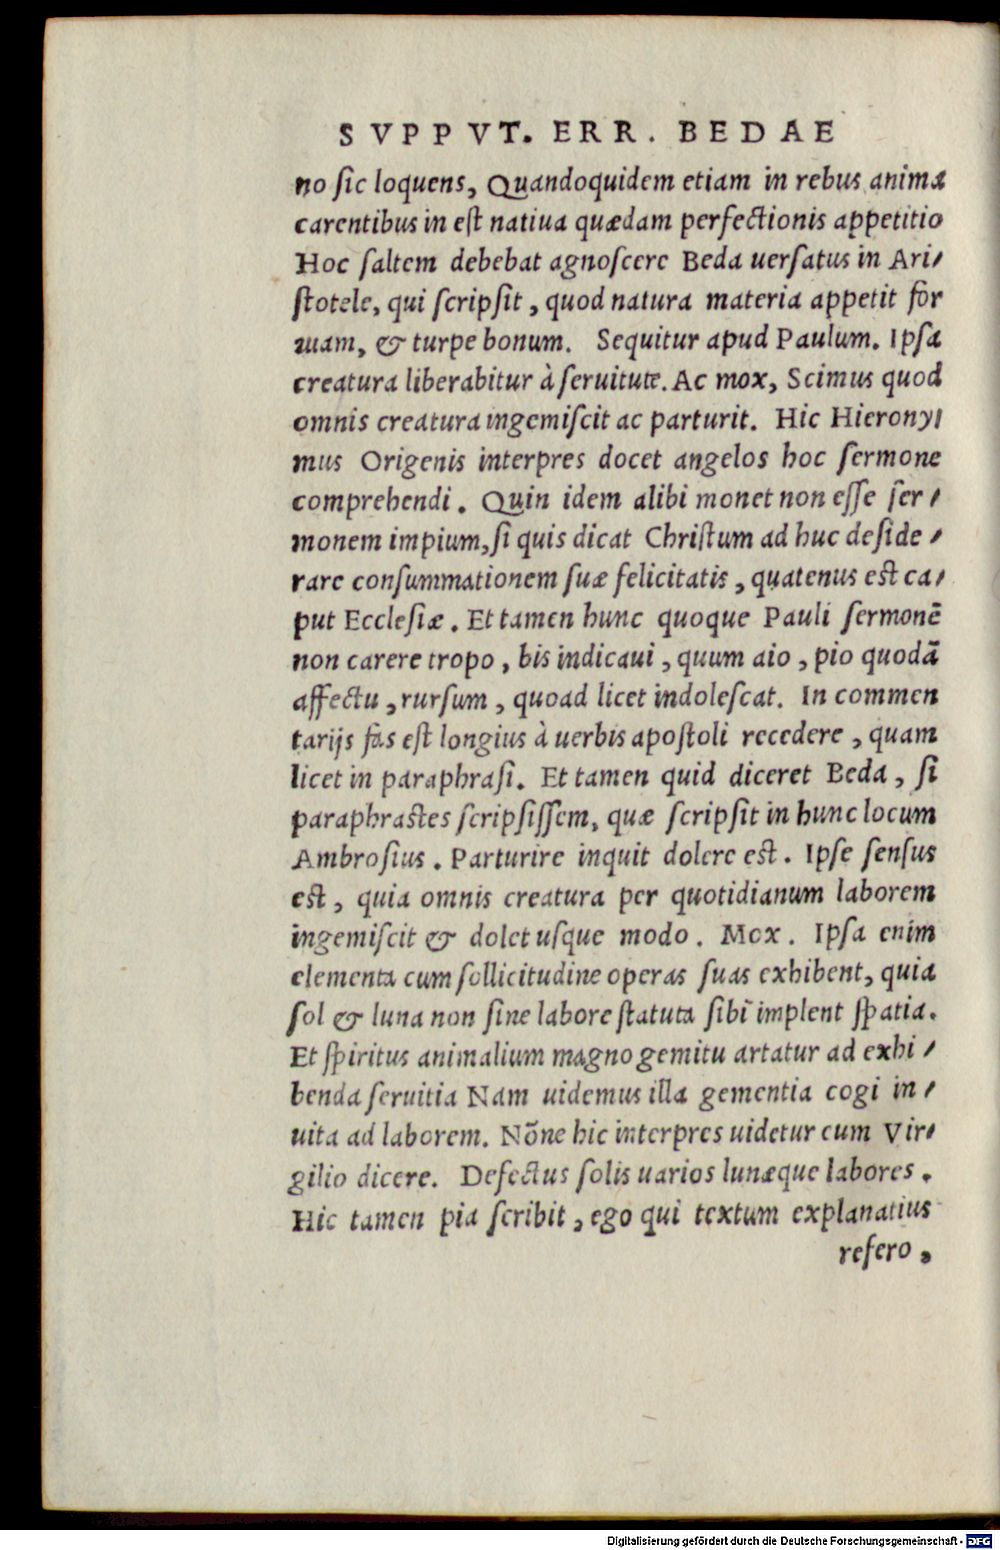 SVPPVT. ERR. BEDAE
no ſic loquens, Quandoquidem etiam in rebus anima
carentibus in eſt natiua quædam perfectionis appetitio
Hoc ſaltem debebat agnoſcere Beda uerſatus in Ari/
ſtotele, qui ſcripſit, quod natura materia appetit for
mam, & turpe bonum. Sequitur apud Paulum. Ipſa
creatura liberabitur à ſeruitute. Ac mox, Scimus quod
omnis creatura ingemiſcit ac parturit. Hic Hierony/
mus Origenis interpres docet angelos hoc ſermone
comprehendi. Quin idem alibi monet non eſſe ſer/
monem impium, ſi quis dicat Chriſtum ad huc deſide/
rare conſummationem ſuæ felicitatis, quatenus eſt ca/
put Eccleſiæ. Et tamen hunc quoque Pauli ſermonē
non carere tropo, bis indicaui, quum aio, pio quodā
affectu, rurſum, quoad licet indoleſcat. In commen
tarijs fas eſt longius à uerbis apoſtoli recedere, quam
licet in paraphraſi. Et tamen quid diceret Beda, ſi
paraphraſtes ſcripſiſſem, quæ ſcripſit in hunc locum
Ambroſius. Parturire inquit dolere eſt. Ipſe ſenſus
eſt, quia omnis creatura per quotidianum laborem
ingemiſcit & dolet uſque modo. Mox. Ipſa enim
elementa cum ſollicitudine operas ſuas exhibent, quia
ſol & luna non ſine labore ſtatuta ſibi implent ſpatia.
Et ſpiritus animalium magno gemitu artatur ad exhi/
benda ſeruitia Nam uidemus illa gementia cogi in/
uita ad laborem. Nōne hic interpres uidetur cum Vir/
gilio dicere. Defectus ſolis uarios lunæque labores.
Hic tamen pia ſcribit, ego qui textum explanatius
refero,
Digitalisierung gefördert durch die Deutsche Forschungsgemeinschaft - DFG